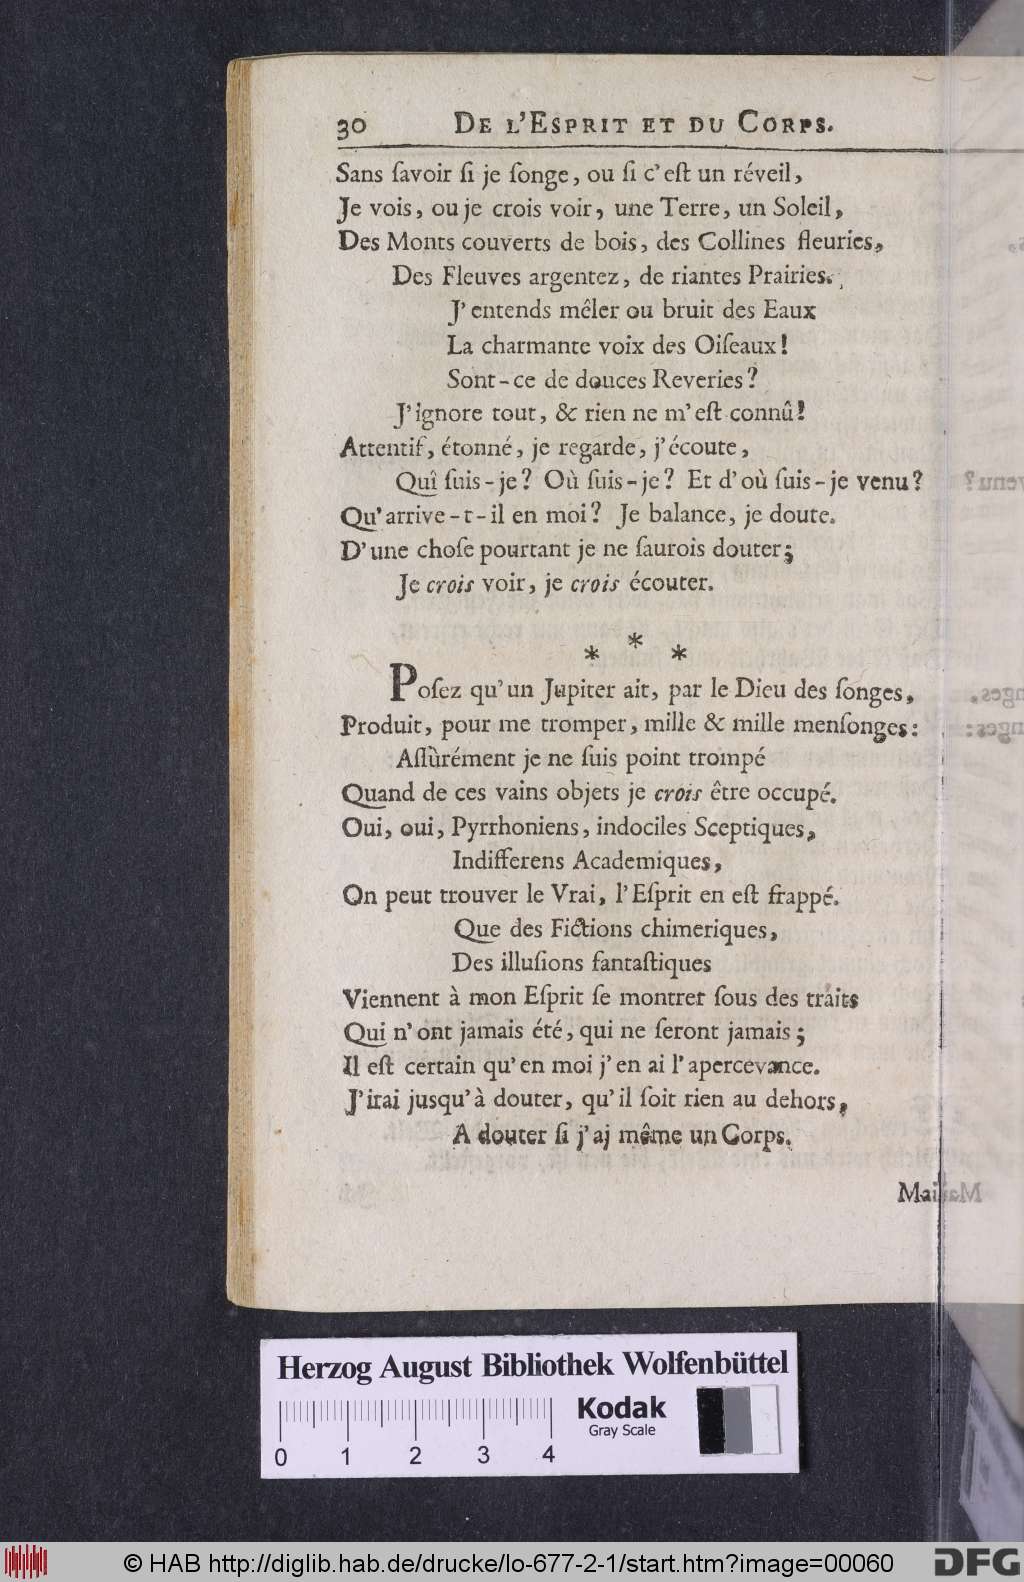 30 DE L'ESPRIT ET DU CORPS.
Sans ſavoir ſi je ſonge, ou ſi c'eſt un réveil,
Je vois, ou je crois voir, une Terre, un Soleil,
Des Monts couverts de bois, des Collines fleuries,
Des Fleuves argentez, de riantes Prairies.
J'entends mêler ou bruit des Eaux
La charmante voix des Oiſeaux!
Sont-ce de douces Reveries?
J'ignore tout, & rien ne m'eſt connû!
Attentif, étonné, je regarde, j'écoute,
Quî ſuis-je? Où ſuis-je? Et d'où ſuis-je venu?
Qu'arrive-t-il en moi? Je balance, je doute.
D'une choſe pourtant je ne ſaurois douter;
Je crois voir, je crois écouter.
* * *
Poſez qu'un Jupiter ait, par le Dieu des ſonges,
Produit, pour me tromper, mille & mille menſonges:
Aſſûrément je ne ſuis point trompé
Quand de ces vains objets je crois être occupé.
Oui, oui, Pyrrhoniens, indociles Sceptiques,
Indifferens Academiques,
On peut trouver le Vrai, l'Eſprit en eſt frappé.
Que des Fictions chimeriques,
Des illuſions fantaſtiques
Viennent à mon Eſprit ſe montrer ſous des traits
Qui n'ont jamais été, qui ne ſeront jamais;
Il eſt certain qu'en moi j'en ai l'apercevance.
J'irai jusqu'à douter, qu'il ſoit rien au dehors,
A douter ſi j'aj même un Corps.
Mais
Herzog August Bibliothek Wolfenbüttel
Kodak
Gray Scale
0 1 2 3 4
© HAB http://diglib.hab.de/drucke/lo-677-2-1/start.htm?image=00060
DFG